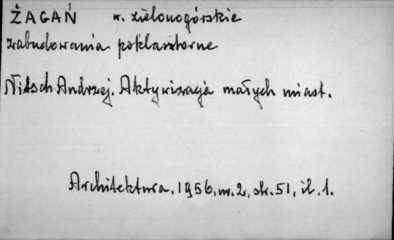 ŻAGAŃ w. zielonogórskie
zabudowania poklasztorne
Nitsch Andrzej. Aktywizacja małych miast.
Architektura. 1956, nr. 2, str. 51, il. 1.